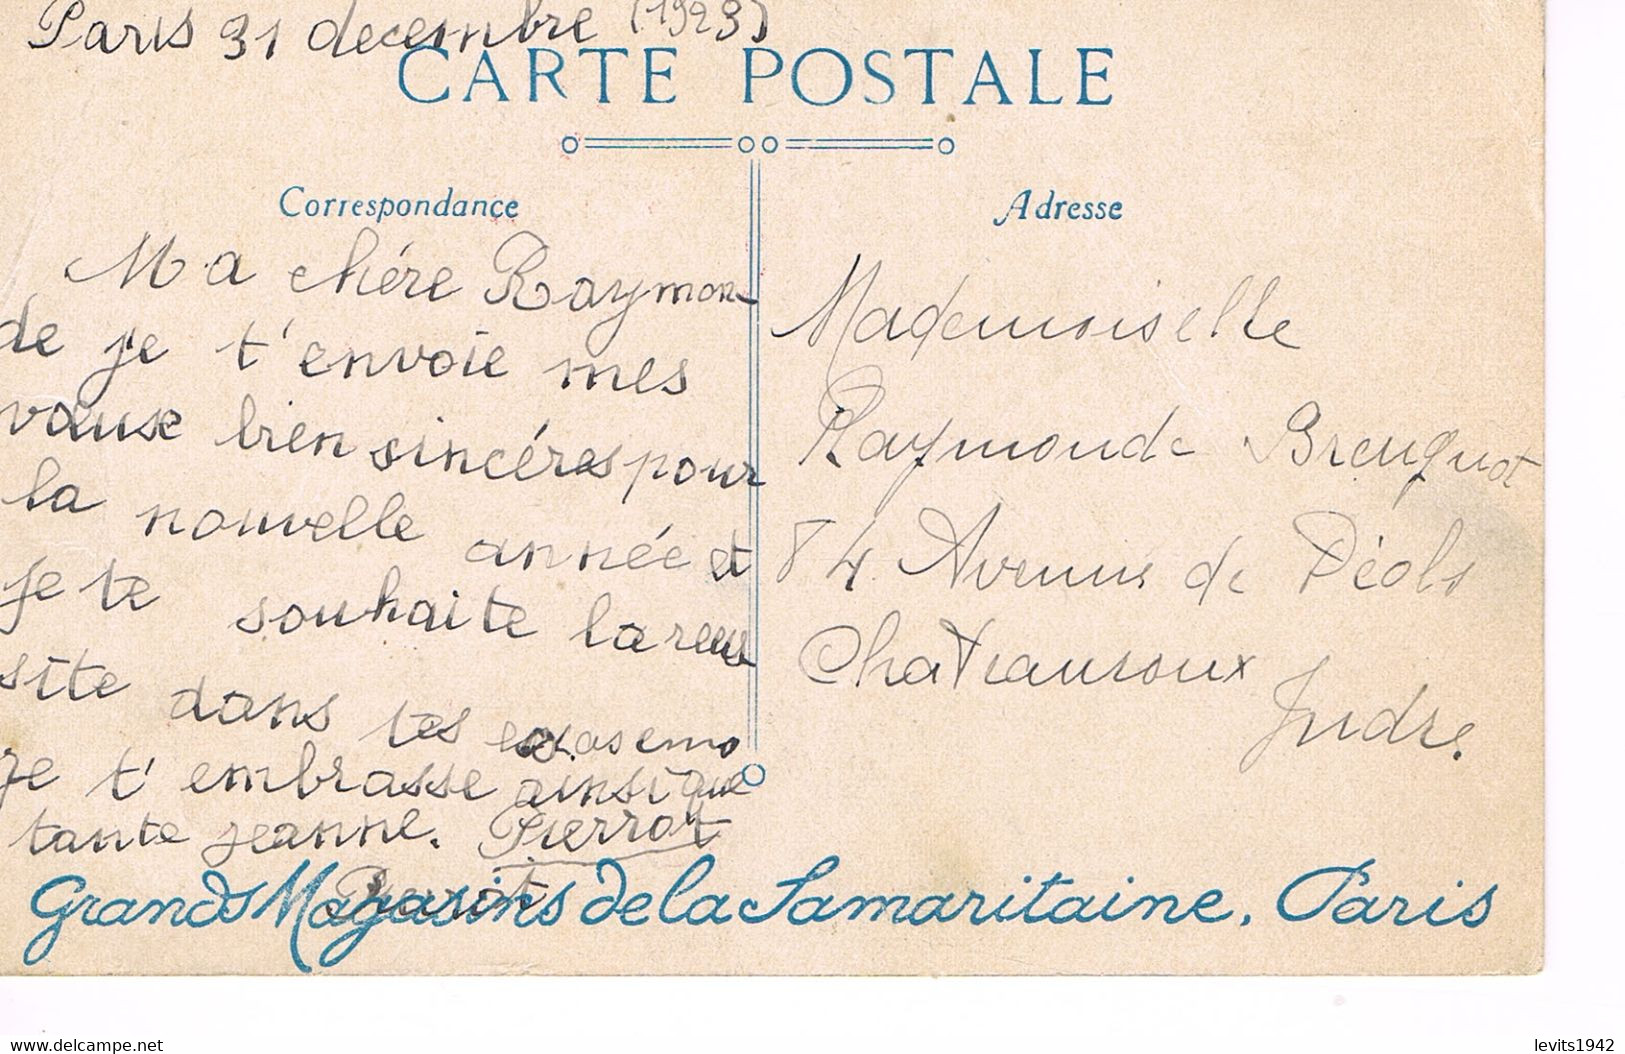 Paris 31 decembre (1923)
CARTE POSTALE
Correspondance
Ma chére Raymon-
de je t'envoie mes
vause bien sincéres pour
la nouvelle année et
je te souhaite la reeu
site dans tes
je t'embrasse ainsi que
tante jeanne. Pierrot
Pierrot
Adresse
Mademoiselle
Raymonde Breuquot
84 Avenue de Déols
Chateauroux
Indre.
Grands Magasins de la Samaritaine, Paris
www.delcampe.net
levits1942